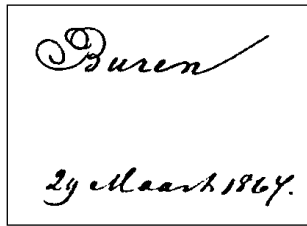 Buren
29 Maart 1867.